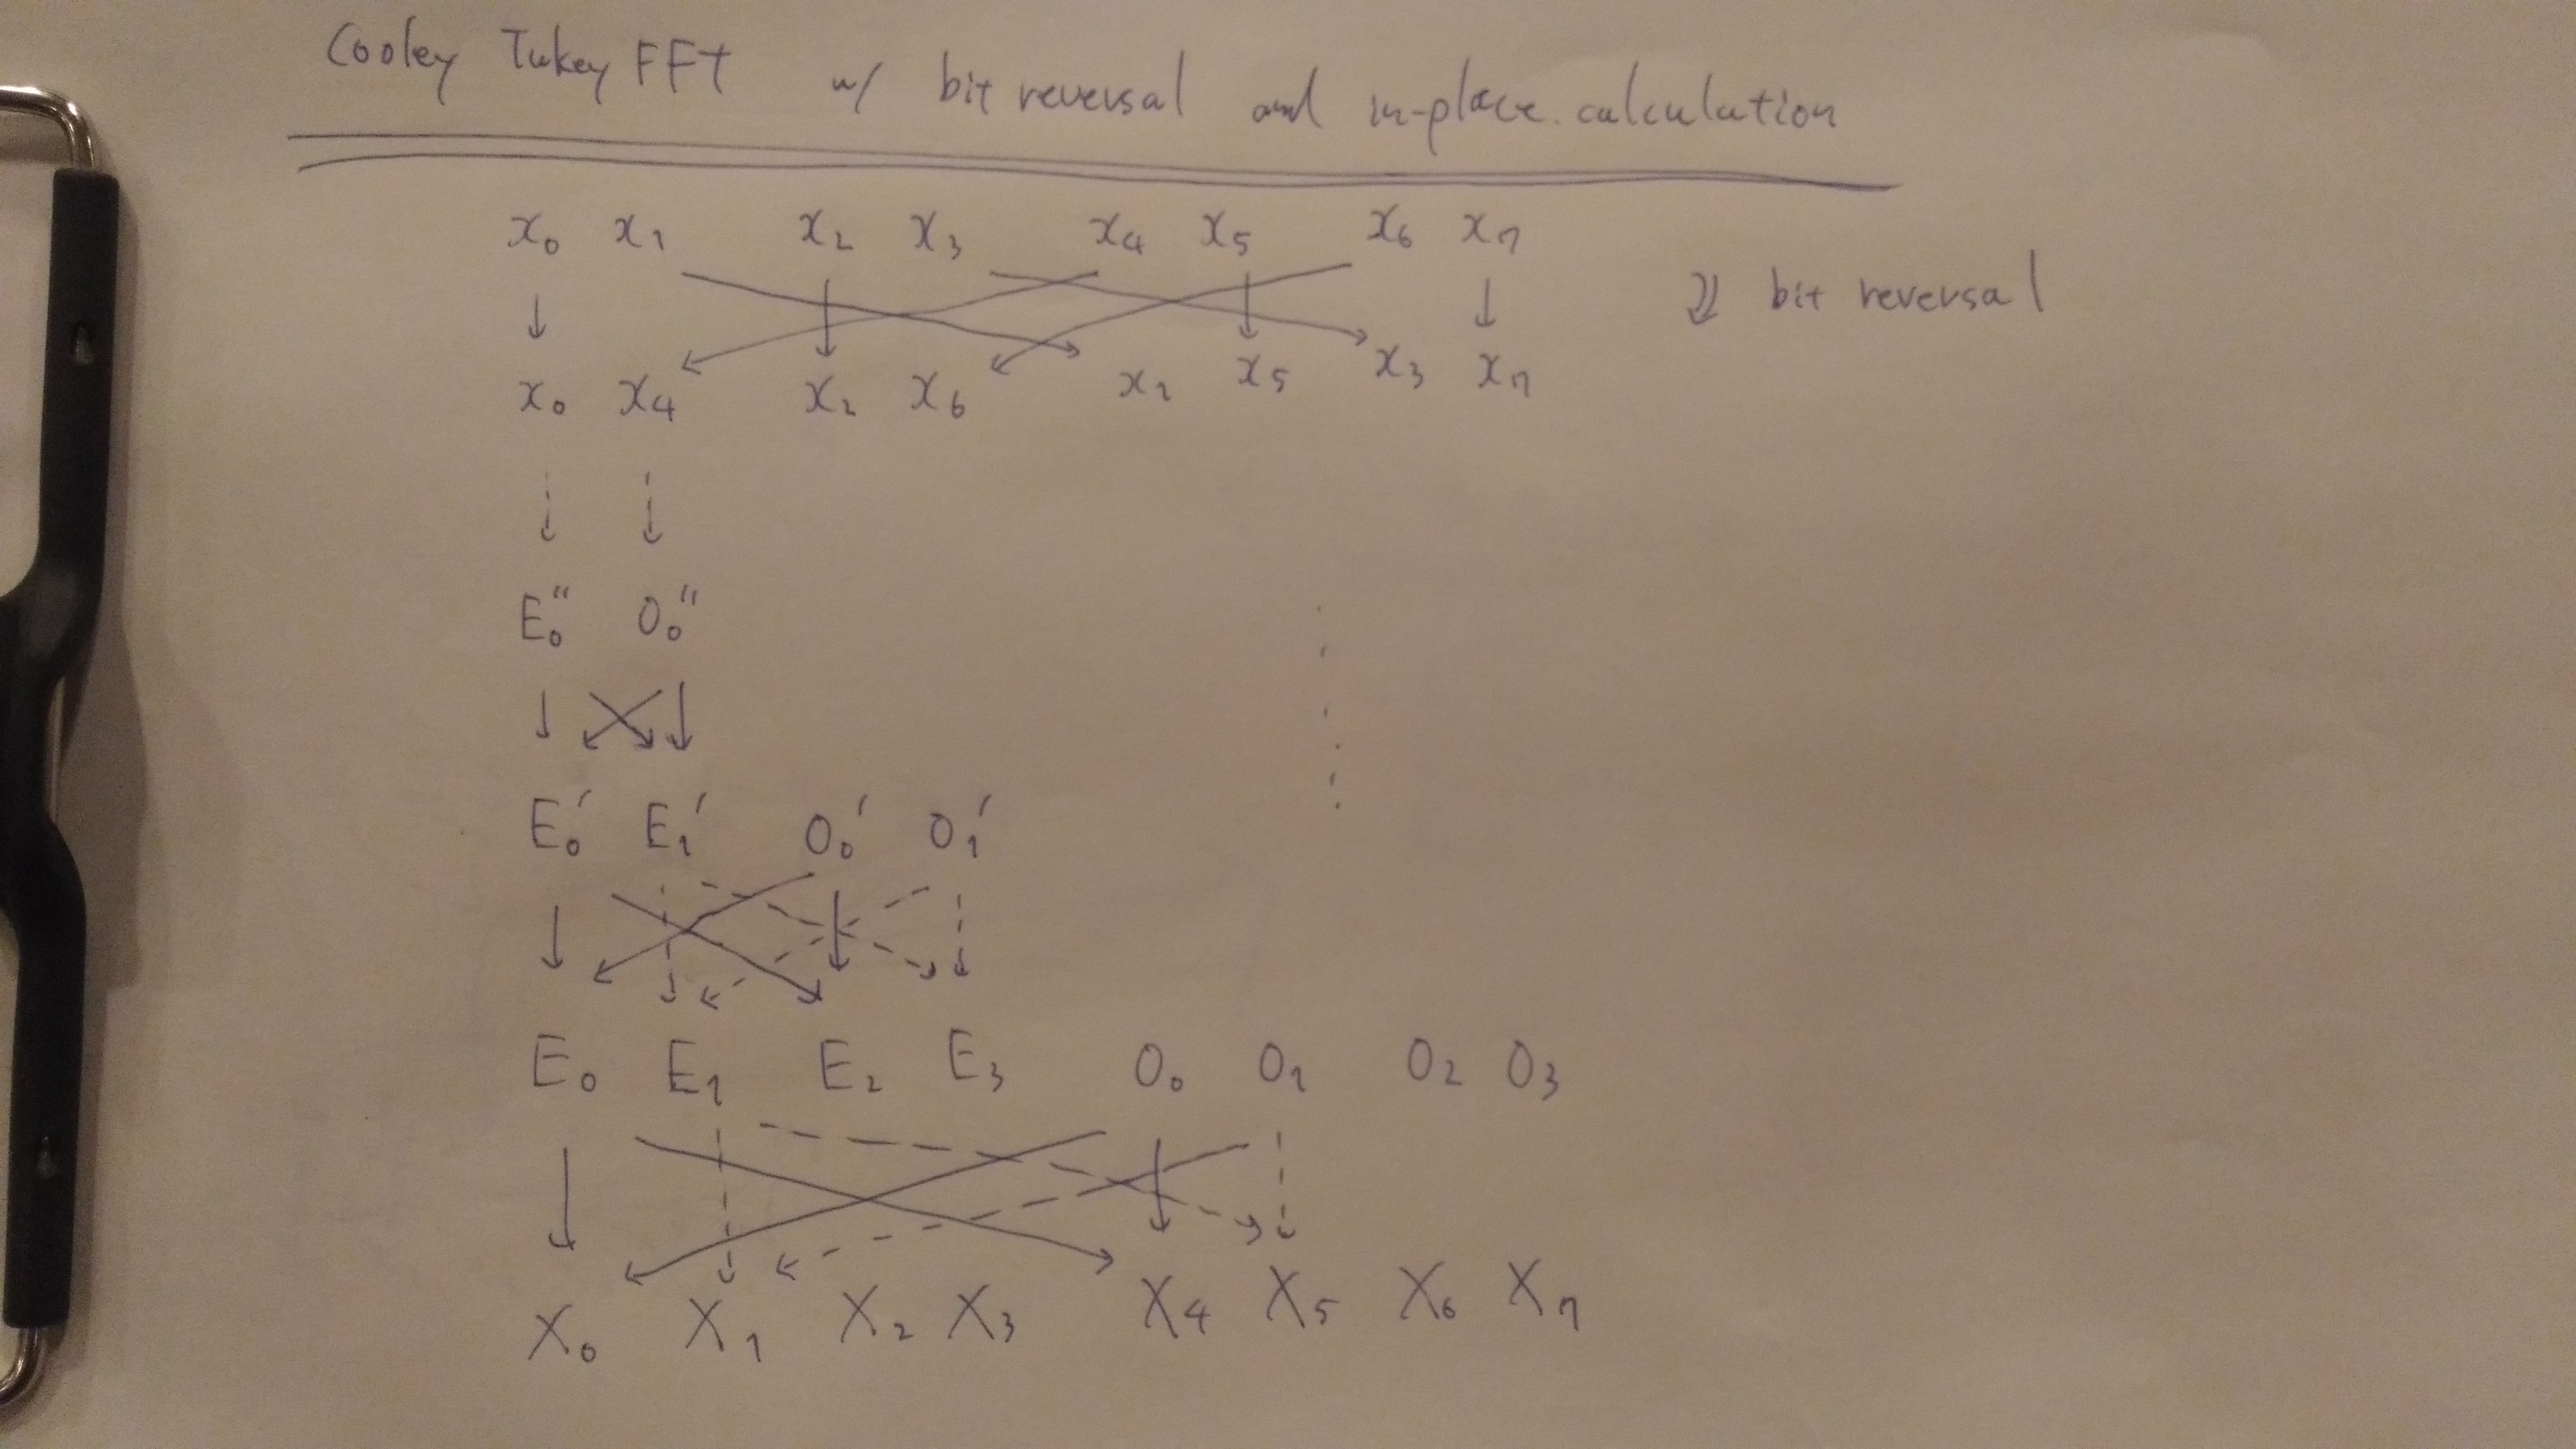 Cooley Tukey FFT w/ bit reversal and in-place calculation
x₀ x₁ x₂ x₃ x₄ x₅ x₆ x₇
bit reversal
x₀ x₄ x₂ x₆ x₁ x₅ x₃ x₇
E₀″ O₀″
E₀′ E₁′ O₀′ O₁′
E₀ E₁ E₂ E₃ O₀ O₁ O₂ O₃
X₀ X₁ X₂ X₃ X₄ X₅ X₆ X₇